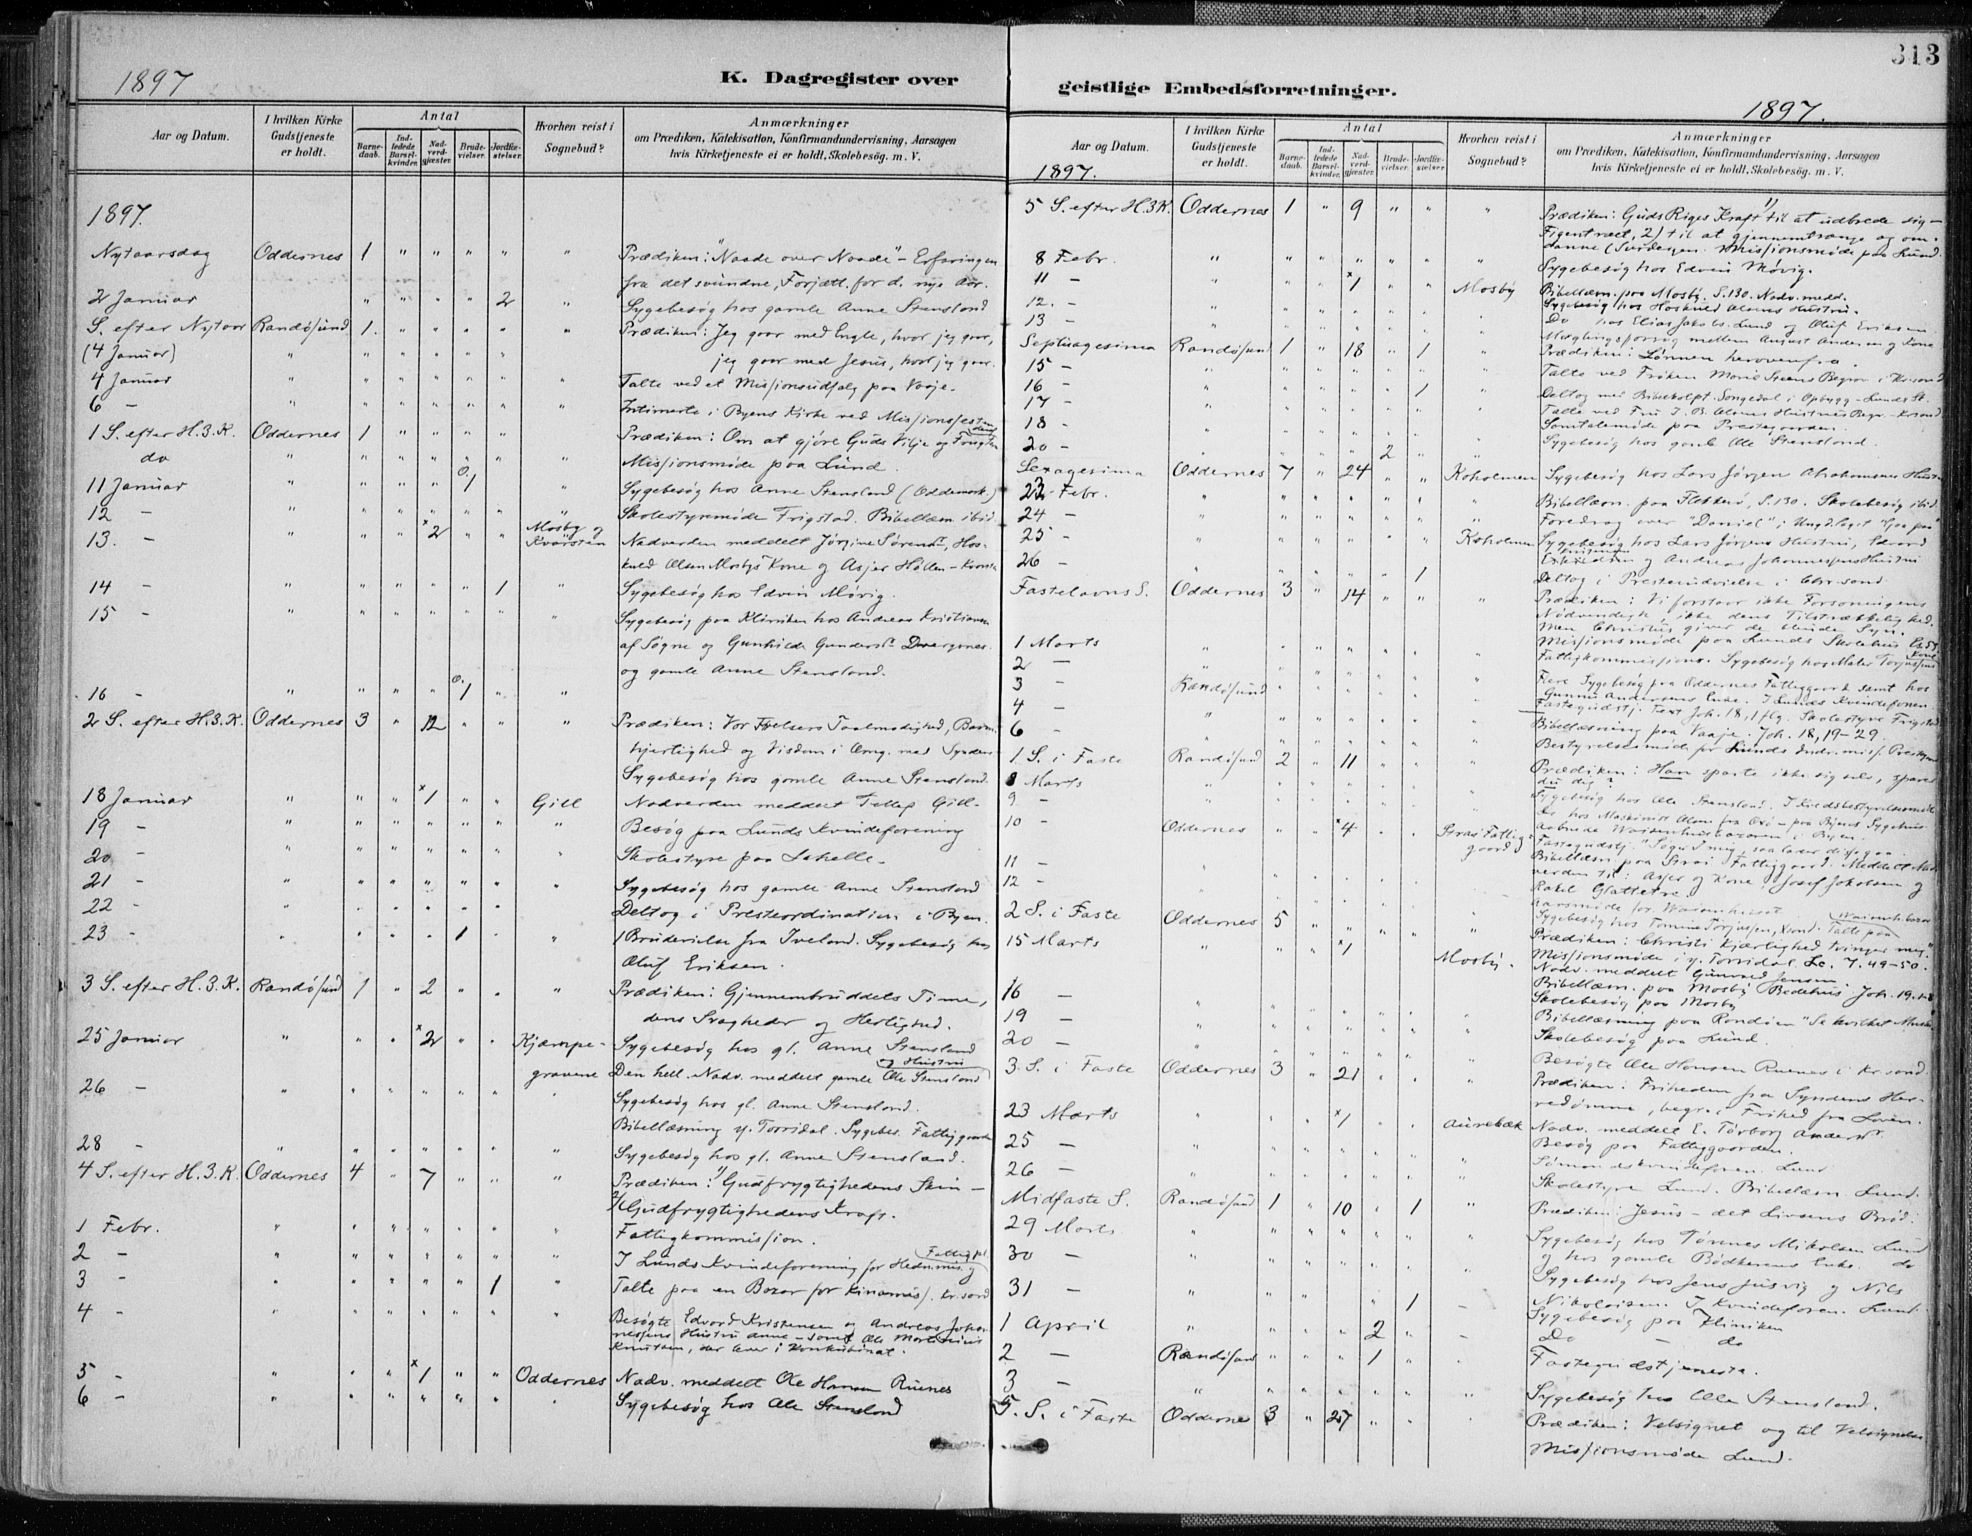 1897
K. Dagregister over
Aar og Datum.
I hvilken Kirke Gudstjeneste er holdt.
Antal
Barne-daab.
Ind-ledede Barsel-kvinder.
Nad-verd-gjæster.
Brude-vielser.
Jordfæ-stelser.
Hvorhen reist i Sognebud?
Anmærkninger
om Prædiken, Katekisation, Konfirmandundervisning, Aarsagen
hvis Kirketjeneste ei er holdt, Skolebesög. m. V.
1897.
Nytaarsdag Oddernes 1 " " " " " Prædiken: "Naade over Naade" - Erfaringen
fra det svundne, Forjætt. for d. nye Aar.
2 Januar " " " " 2 " Sygebesøg hos gamle Anne Stensland
S. efter Nytaar Randøsund 1. " " " " " Prædiken: Jeg gaar med Engle, hvor jeg gaar,
(4 Januar) " " " " " " jeg gaar med Jesus, hvor jeg gaar.
4 Januar " " " " " " " Talte ved et Missionsudsalg paa Vaaje.
6 - " " " " " " " Intimerte i Byens Kirke ved Missionsfesten
1 S. efter H.3.K. Oddernes 1 " " " " Prædiken: Om at gjøre Guds Vilje og
do " " " " " " " Missionsmøde paa Lund
11 Januar " " " " 0,1 " Sygebesøg hos Anne Stensland (Oddemark.)
12 - " " " " " " " Skolestyremøde Frigstad. Bibellæsn. ibid.
13. - " " " x2 " " Mosby og Kvarsten Nadverden meddelt Jørgine Sørensdr, Hos-
kuld Olsen Mosbys Kone og Asjer Hollen - Kvarsten
14 - " " " " " 1 " Sygebesøg hos Edvin Mørig.
15 - " " " " " " " Sygebesøg paa Kliniken hos Andreas Kristiansen
af Søgne og Gunhilde Gundersdr. Dvergsnes.
og gamle Anne Stensland.
16 - " " " " 0,1 " "
2 S. efter H.3.K. Oddernes 3 " 12 " " " Prædiken: Vor Frelsers Taalmodighed, Barm-
hjertighed og Visdom i Omg. med Syndere
Sygebesøg hos gamle Anne Stensland.
18 Januar " " " x1 " " Gill Nadverden meddelt Tellef Gill.
19 - " " " " " " " Besøg paa Lunds Kvindeforening
20 - " " " " " " " Skolestyre paa
21 - " " " " " " " Sygebesøg hos gamle Anne Stensland
22 - " " " " " " Deltog i Presteordination i Byen.
23 - " " " " 1 " " 1 Brudevielse fra Iveland. Sygebesøg hos
Oluf Eriksen.
3 S. efter H.3.K. Randøsund 1 " 2 " " " Prædiken: Gjennembruddets Time,
dens Svagheder og Herlighed.
25 Januar " " " x2 " " Kjærpe-gravene Sygebesøg hos gl. Anne Stensland
og Hustru
Den hell. Nadv. meddelt gamle Ole Stensland
26 - " " " " " " " Sygebesøg hos gl. Anne Stensland.
Bibellæsning y. Torridal. Sygebes. Fattiggaarden
28 - " " " " " " " Sygebesøg hos gl. Anne Stensland.
4 S. efter H.3.K. Oddernes 4 " 7 " " " Prædiken: 1/ Gudfrygtighedens Skin -
2/ Gudfrygtighedens Kraft.
1 Febr. " " " " " " " Fattigkommission.
2 - " " " " " " " I Lunds Kvindeforening for Hedn.mis. og
3 - " " " " " 1 " Talte paa en Bazar for Kinamis. Kr.sand
4 - " " " " " " " Besøgte Edvard Kristensen og Andreas Johan-
nesens Hustru Anne - samt Ole
Knutsen, der lever i Konkubinat.
5 - " " " x1 " " Oddernes Nadv. meddelt Ole Hansen Ruenes
6 - " " " " " " " Sygebesøg hos Ole Stensland
313
geistlige Embedsforretninger.
1897.
Aar og Datum.
1897.
I hvilken Kirke Gudstjeneste er holdt.
Antal
Barne-daab.
Ind-ledede Barsel-kvinder.
Nad-verd-gjæster.
Brude-vielser.
Jordfæ-stelser.
Hvorhen reist i Sognebud?
Anmærkninger
om Prædiken, Katekisation, Konfirmandundervisning, Aarsagen
hvis Kirketjeneste ei er holdt, Skolebesög. m. V.
5 S. efter H.3.K. Oddernes 1 " 9 " " " Prædiken: Guds Riges Kraft 1) til at udbrede sig -
Figentræet, 2) til at gjennemtrænge og om-
danne (Surdejgen. Missionsmøde paa Lund.
8 Febr. " " " " " " " Sygebesøg hos Edvin Mørig.
11 - " " " x1 " " Mosby Bibellæsn. paa Mosby. S.130. Nadv. medd.
12. - " Sygebesøg hos Hoskuld Olsens Hustru.
13 - " Do hos Elias Jakobs. Lund og Oluf Eriksen
Mæglingsforsøg mellem August Andersen og Kone
Septuagesima Randøsund 1 " 18 " 1 " Prædiken: Lønnen herovenfra
15 - " Talte ved Frøken Marie Steens Begrav. i Kr.sand
16 - " 1 Deltog ved Bibelkolpt. Songedal i Opbygg - Lunds St.
17 - " Talte ved Fru J. B. Olsens Hustrues Begr. Kr.sand
18 - " Samtalemøde paa Prestegaarden.
20 - " 2 " Sygebesøg hos gamle Ole Stensland.
Sexagesima Oddernes 7 " 24 " " Koholmen Sygebesøg hos Lars Jørgen Abrahamsens Hustru
23 Febr. " Bibellæsn. paa Flekkerø, S.130. Skolebesøg ibid.
24 - " Foredrag over "Daniel" i Ungd.laget "Gaa paa"
25 - " Koholmen Sygebesøg hos Lars Jørgens Hustru, Edvard
26 - " 1 og Andreas Johannessens Hustru
Deltog i Prestevielse i Chr.sand.
Fastelavns S. Oddernes 3 " 14 " " " Prædiken: Vi forstaar ikke Forsoningens
Nødvendigh., ikke dens Tilstrækkelighed.
Men Christus giver de blinde Syn.
1 Marts " Missionsmøde paa Lunds Skolehus
2 - " Fattigkommission. Sygebesøg hos Mates Torjussens
3 - Randøsund Flere Sygebesøg paa Oddernes Fattiggaard samt hos
Gunnu Andersens Enke. I Lunds Kvindeforen.
4 - " Fastegudstj. Text Joh. 18,1 flg. Skolestyre Frigstad
6 - " Bibellæsning paa Vaaje. Joh. 18,19-29.
Bestyrelsesmøde for Lunds Indr. miss.
1. S. i Faste Randøsund 2 " 11 " " " Prædiken: Han sparte ikke sig selv, sparer
du dig?
8 Marts " Sygebesøg hos Ole Stensland. I Kredsbestyrelsesmøde
9 - " Do hos Maskinist Olsen fra - paa Byens Sygehus.
10 - Oddernes x4 Strai Fattig-gaard
11 - " Bibellæsn. paa Strai Fattiggaard. Meddelt Nad-
12 - " verden til: Asjer og Kone, Josef Jakobsen og
Rakel Glattetre.
2 S. i Faste Oddernes 5 Sygebesøg hos Tomine Torjussen, Kr.sand. Talte paa
Prædiken: "Christi Kjærlighed tvinger mig".
15 Marts " x1 Mosby. Missionsmøde i y. Torridal. Lc. 7.49-50.
Nadv. meddelt Gunvald Jensen
16 - " Bibellæsn. paa Mosby Bedehus Joh. 19.1-8
Skolebesøg paa Mosby
19 - " Bibellæsning paa Randøen "Se hvilket Menn."
20 - " Skolebesøg paa Lund.
Besøgte Ole Hansen Ruenes i Kr.sand.
3. S. i Faste Oddernes 3 " 21 Prædiken: Friheden fra Syndens Her-
redømme, begr. i Frihed fra Loven.
23 Marts " x1 Aurebæk Nadv. meddelt E. Torborg Andersdr.
25 - " Besøg paa Fattiggaarden.
26 - " Sømandskvindeforen. Lund
Skolestyre Lund. Bibellæsn. Lund.
Midfaste S. Randøsund 1 " 10 " 1 " Prædiken: Jesus - det Livsens Brød.
29 Marts " Sygebesøg hos Tønnes Mikalsen Lund
30 - " og hos gamle Bødkerens Enke. do
31 - " 1 - Sygebesøg hos Jens Jusvig og Nils
Nikolaisen. I Kvindeforen. Lund.
1 April " 2 - Sygebesøg paa Kliniken
Do - do
2 - Randøsund 1 Fastegudstjeneste.
3 - " Sygebesøg hos Olle Stensland.
5. S. i Faste Oddernes 3 " 27 " Prædiken: Velsignet og til Velsignelse
Missionsmøde Lund.